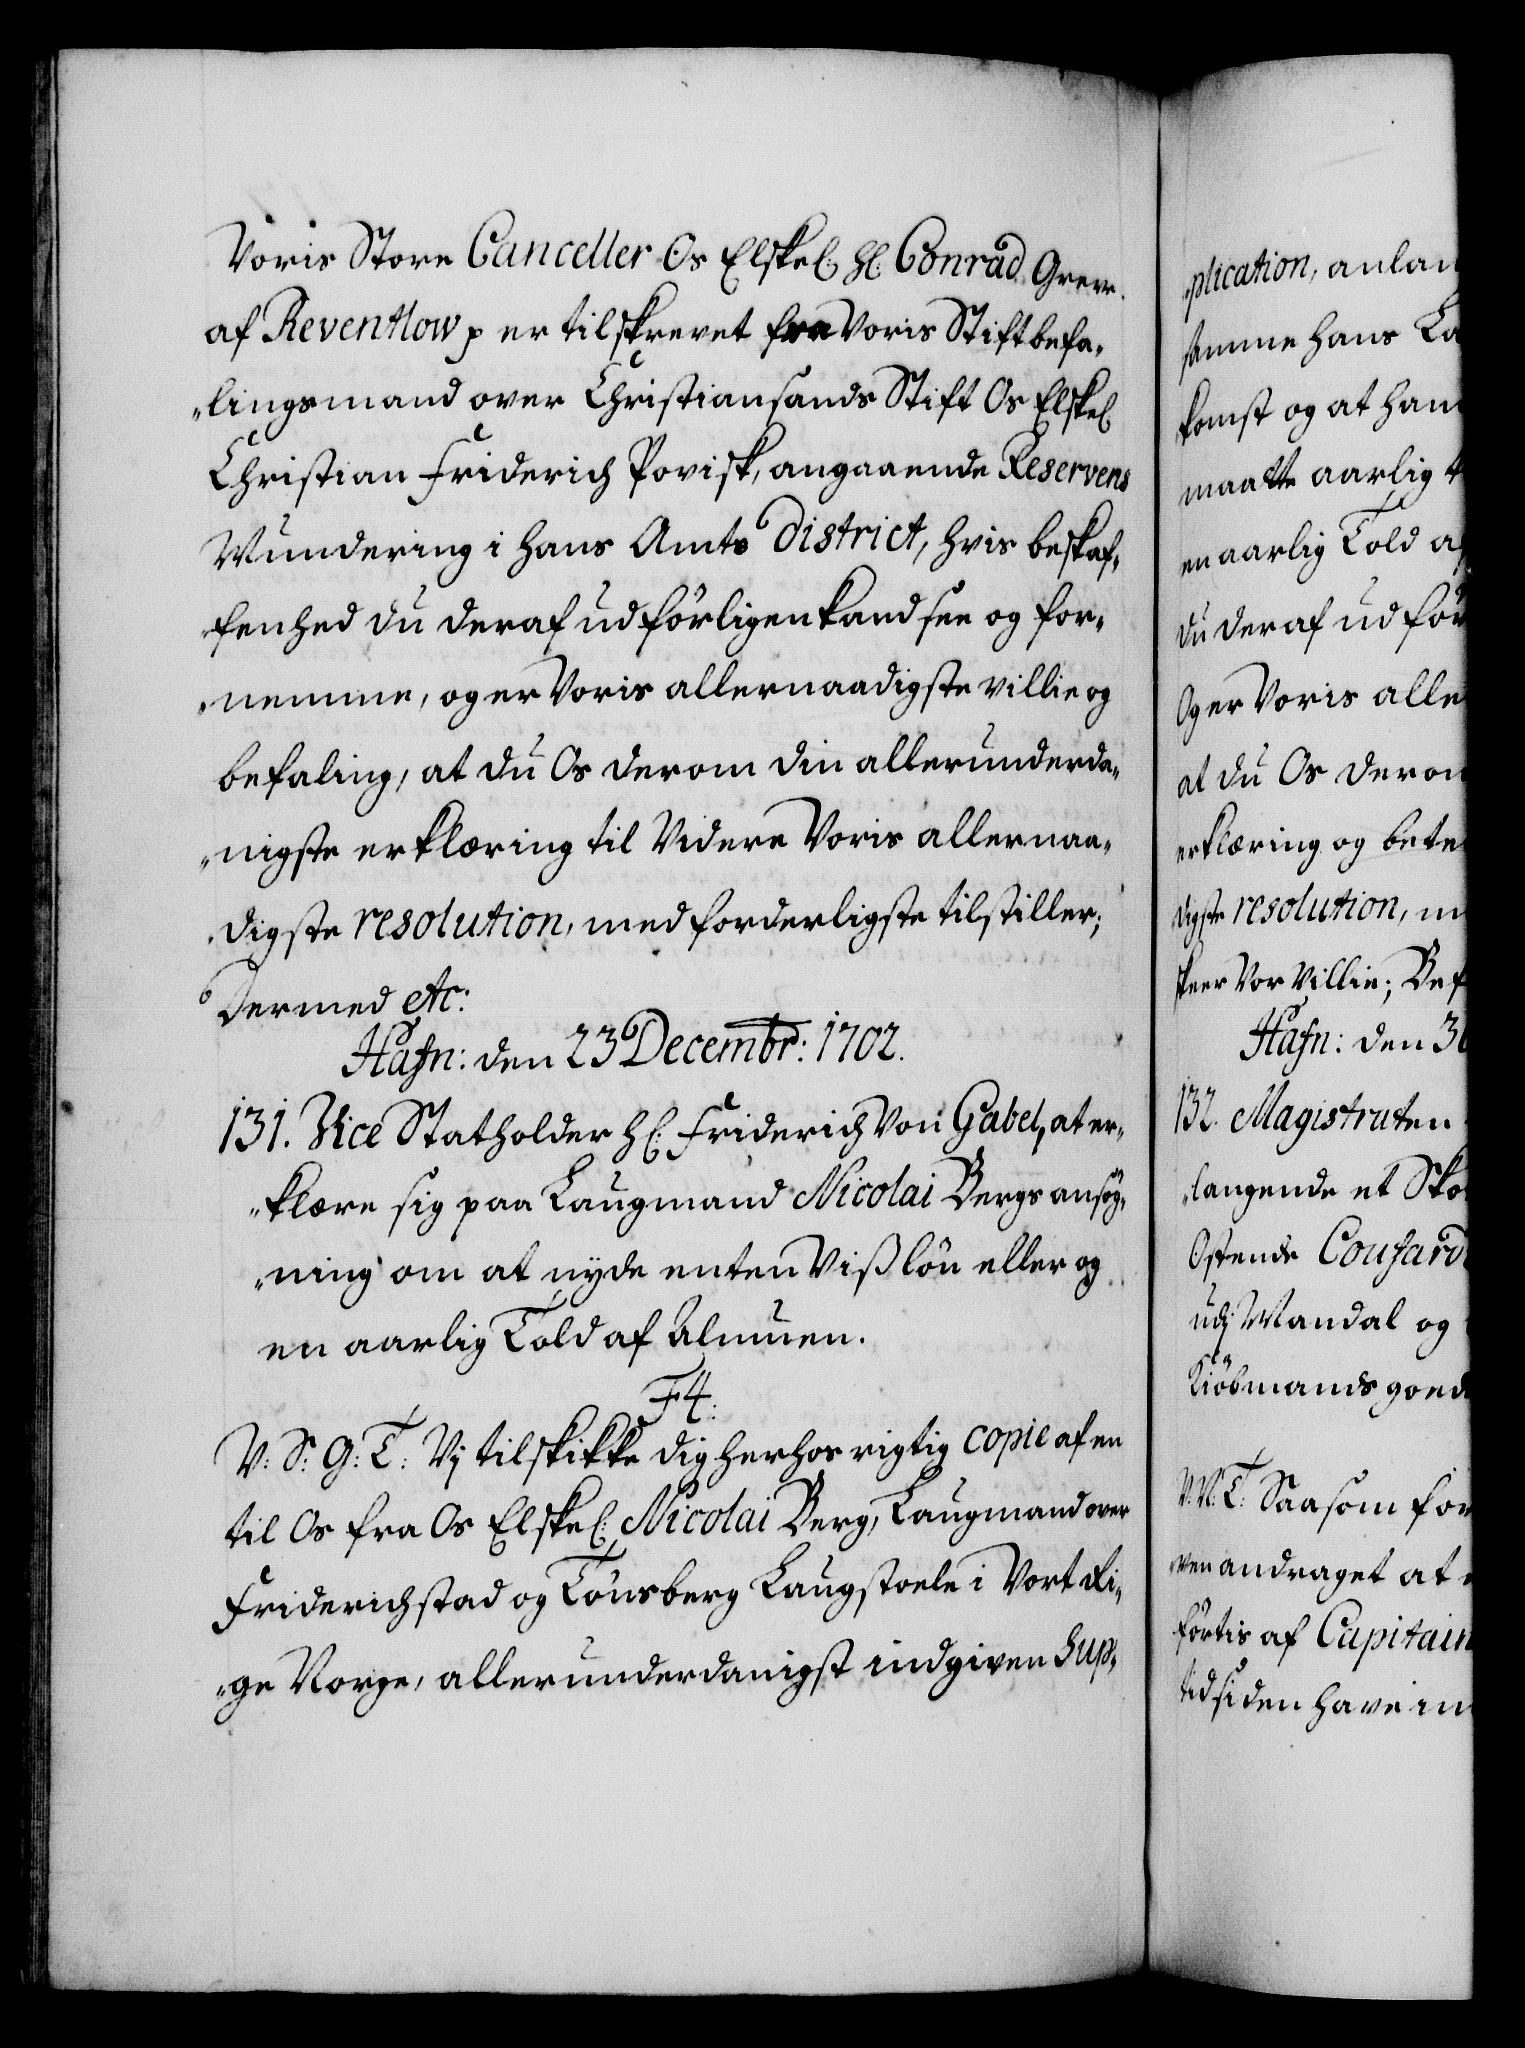 Voris Store Canceller Os Elskel: Hl: Conrad Grev
af Reventlow p er tilskrevet fra Voris Stiftbefa,
„lingsmand over Christiansands Stift Os Elskel
Christian Friderich Povisk, angaaende Reservens
Mundering i hans Amts District, hvis beskaf,
fenhed du deraf udförligen kand see og for,
„nemme, og er Voris allernaadigste villie og
befaling, at du Os derom din allerunderda,
„nigste erklæring til Videre Voris allernaa,
„digste resolution, med forderligste tilstiller;
Dermed etc:
Hafn: den 23 Decembr: 1702.
131. Vice Statholder Hl: Friderich Von Gabel, at er,
„klære sig paa Laugmand Nicolai Bergs ansög,
„ning om at nyde enten Viß lön eller og
en aarlig Told af Almuen.
F4:
V: S: G: T: Vj tilskikke dig herhos rigtig copie af en
til Os fra Os Elskel: Nicolai Berg, Laugmand over
Friderichstad og Tönsberg Laugstoele i Vort Ri,
„ge Norge, allerunderdanigst indgiven Sup,
plication, anlan
samme hans La
komst og at han
maatte aarlig
en aarlig Told a
du deraf udför
Og er Voris alle
at du Os derom
erklæring og bete
digste resolution, m
skeer Vor Villie; Bef
Hafn: den 30
132. Magistraten
„langende et Sko
Ostende
udj Mandal og
Kiöbmands goed
V: N: T: Saasom for
ven andraget at
förtis af Capitain
tid siden have in